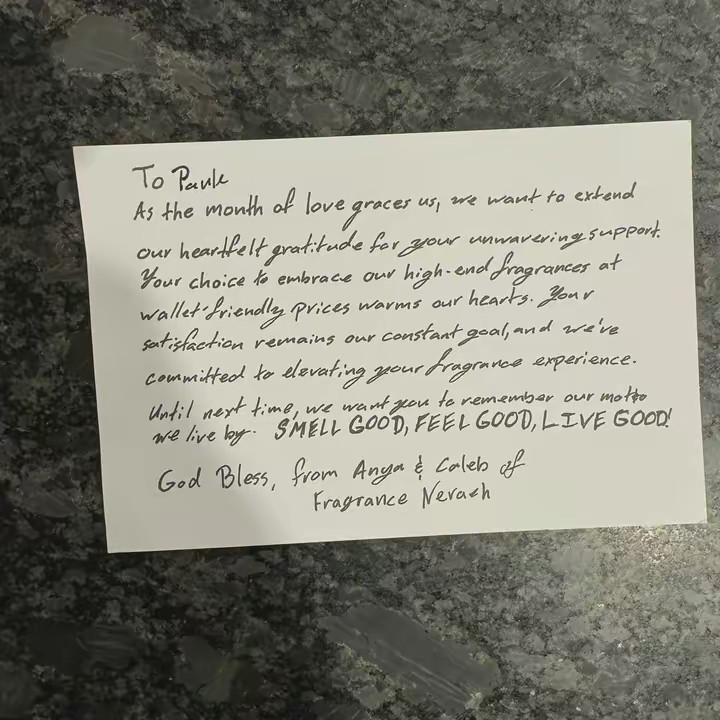 To Paule
As the month of love graces us, we want to extend
our heartfelt gratitude for your unwavering support.
Your choice to embrace our high-end fragrances at
wallet-friendly prices warms our hearts. Your
satisfaction remains our constant goal, and we've
committed to elevating your fragrance experience.
Until next time, we want you to remember our motto
we live by. SMELL GOOD, FEEL GOOD, LIVE GOOD!
God Bless, from Anya & Caleb of
Fragrance